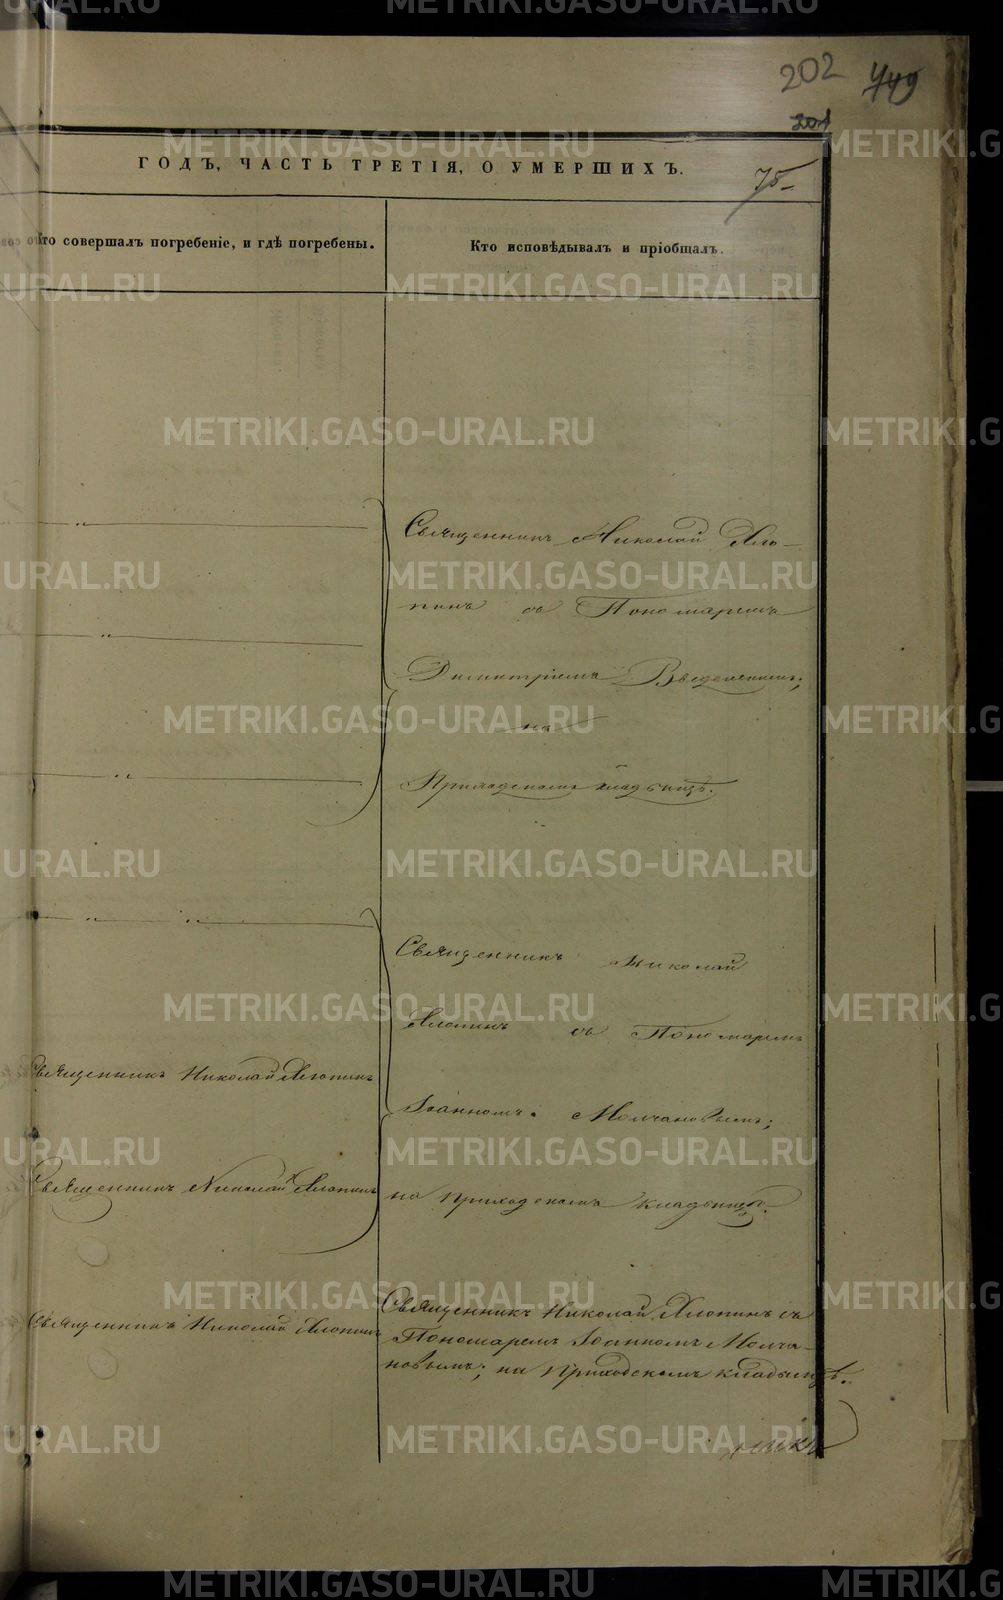 202 449
201
ГОДЪ, ЧАСТЬ ТРЕТІЯ, О УМЕРШИХЪ.
75
Кто совершалъ погребеніе, и гдѣ погребены.
Кто исповѣдывалъ и пріобщалъ.
Священникъ Николай Хло-
пинъ съ Пономаремъ
Димитріемъ Введенскимъ;
на
Приходскомъ кладбищѣ.
Священникъ Николай
Хлопинъ съ Пономаремъ
Іоанномъ Молчановымъ;
на приходскомъ кладбищѣ.
Священникъ Николай Хлопинъ
Священникъ Николай Хлопинъ
Священникъ Николай Хлопинъ
Священникъ Николай Хлопинъ съ
Пономаремъ Іоанномъ Молча-
новымъ; на Приходскомъ кладбищѣ.
METRIKI.GASO-URAL.RU